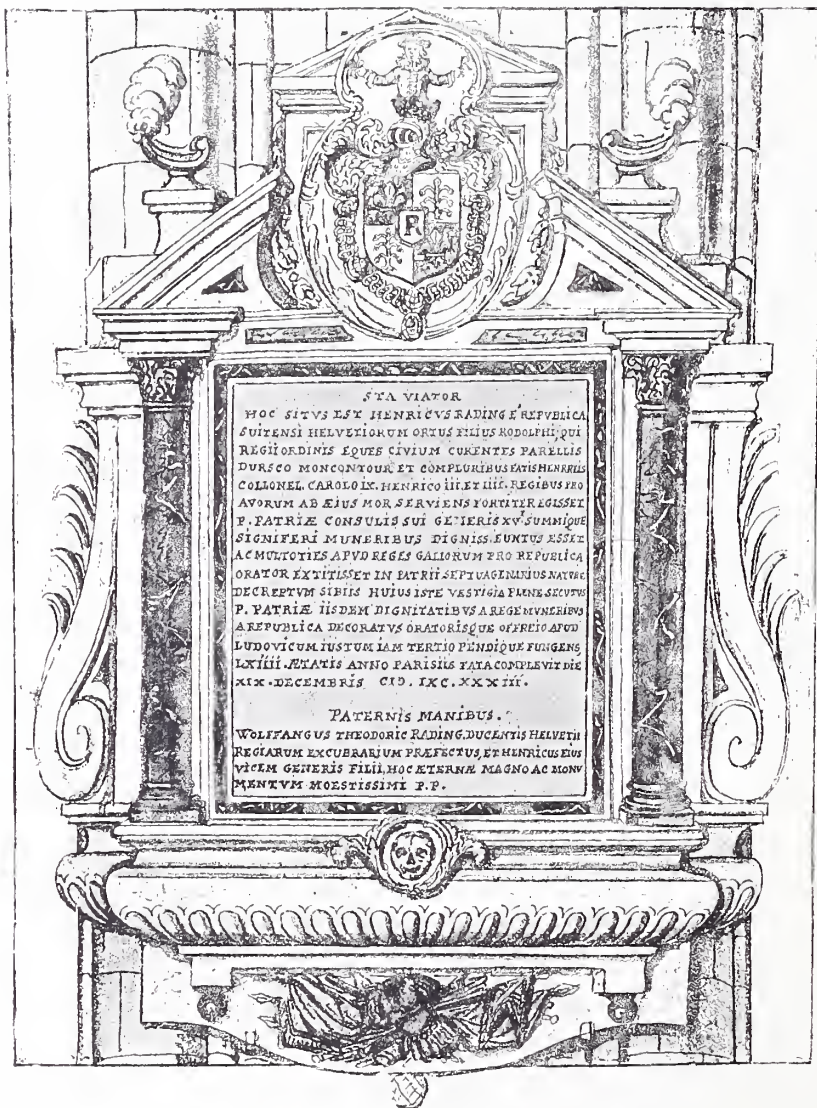 R
STA VIATOR
HOC SITVS EST HENRICVS RADING E REPVBLICA
SUITENSI HELVETIORUM ORTUS FILIUS RODOLPHI, QUI
REGII ORDINIS EQUES CIVIUM CURENTES PARELLIS
DURSCO MONCONTOUR ET COMPLURIBUS FATIS HENRICIIS
COLLONEL. CAROLO IX. HENRICO III. ET IIII. REGIBUS PRO
AVORUM AB ÆIUS MOR SERVIENS FORTITER EGISSET
P. PATRIÆ CONSULIS SUI GENERIS XV. SUMMIQUE
SIGNIFERI MUNERIBUS DIGNISS. EUNTUS ESSET
AC MULTOTIES APUD REGES GALIORUM PRO REPUBLICA
ORATOR EXTITISSET IN PATRII SEPTUAGENERIUS NATURE
DECREPTVM SIBIIS HUIUS ISTE VESTIGIA PLENE SECUTUS
P. PATRIÆ IISDEM DIGNITATIBVS A REGE MUNERIBUS
A REPUBLICA DECORATVS ORATORISQUE OFFREIO APUD
LUDOVICUM IUSTUM IAM TERTIO PENDIQUE FUNGENS
LXIIII ÆTATIS ANNO PARISIIS FATA COMPLEVIT DIE
XIX. DECEMBRIS CIƆ. IXC. XXXIII.
PATERNIS MANIBUS.
WOLFFANGUS THEODORIC RADING, DUCENTIS HELVETII
REGIARUM EXCUBRARIUM PRÆFECTUS, ET HENRICUS EIUS
VICEM GENERIS FILII, HOC ÆTERNÆ MAGNO AC MONU
MENTVM MOESTISSIMI P.P.